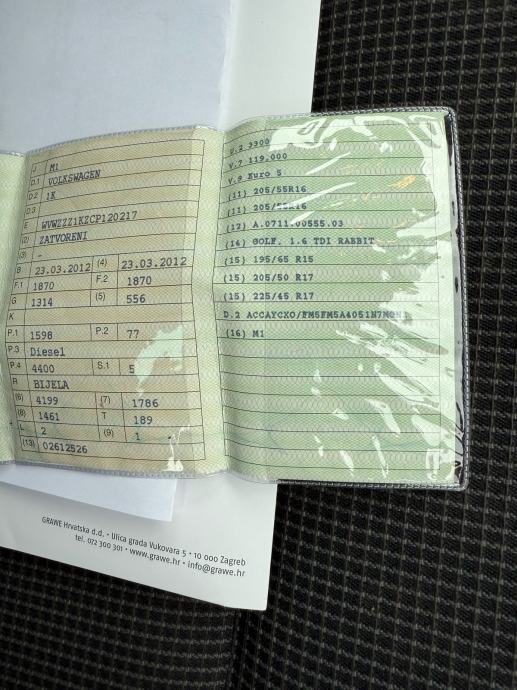 J M1
D.1 VOLKSWAGEN
D.2 1K
D.3
E WVWZZZ1KZCP120217
(2) ZATVORENI
(3) -
B 23.03.2012 (4) 23.03.2012
F.1 1870 F.2 1870
G 1314 (5) 556
K
P.1 1598 P.2 77
P.3 Diesel
P.4 4400 S.1 5
R BIJELA
(6) 4199 (7) 1786
(8) 1461 T 189
L 2 (9) 1
(13) 02612526
V.7 119.000
V.9 Euro 5
(11) 205/55R16
(11) 205/55R16
(12) A.0711.00555.03
(16) GOLF, 1.6 TDI RABBIT
(15) 195/65 R15
(15) 205/50 R17
(15) 225/45 R17
D.2
(16) M1
GRAWE Hrvatska d.d. • Ulica grada Vukovara 5 • 10 000 Zagreb
tel. 072 300 301 • www.grawe.hr • info@grawe.hr